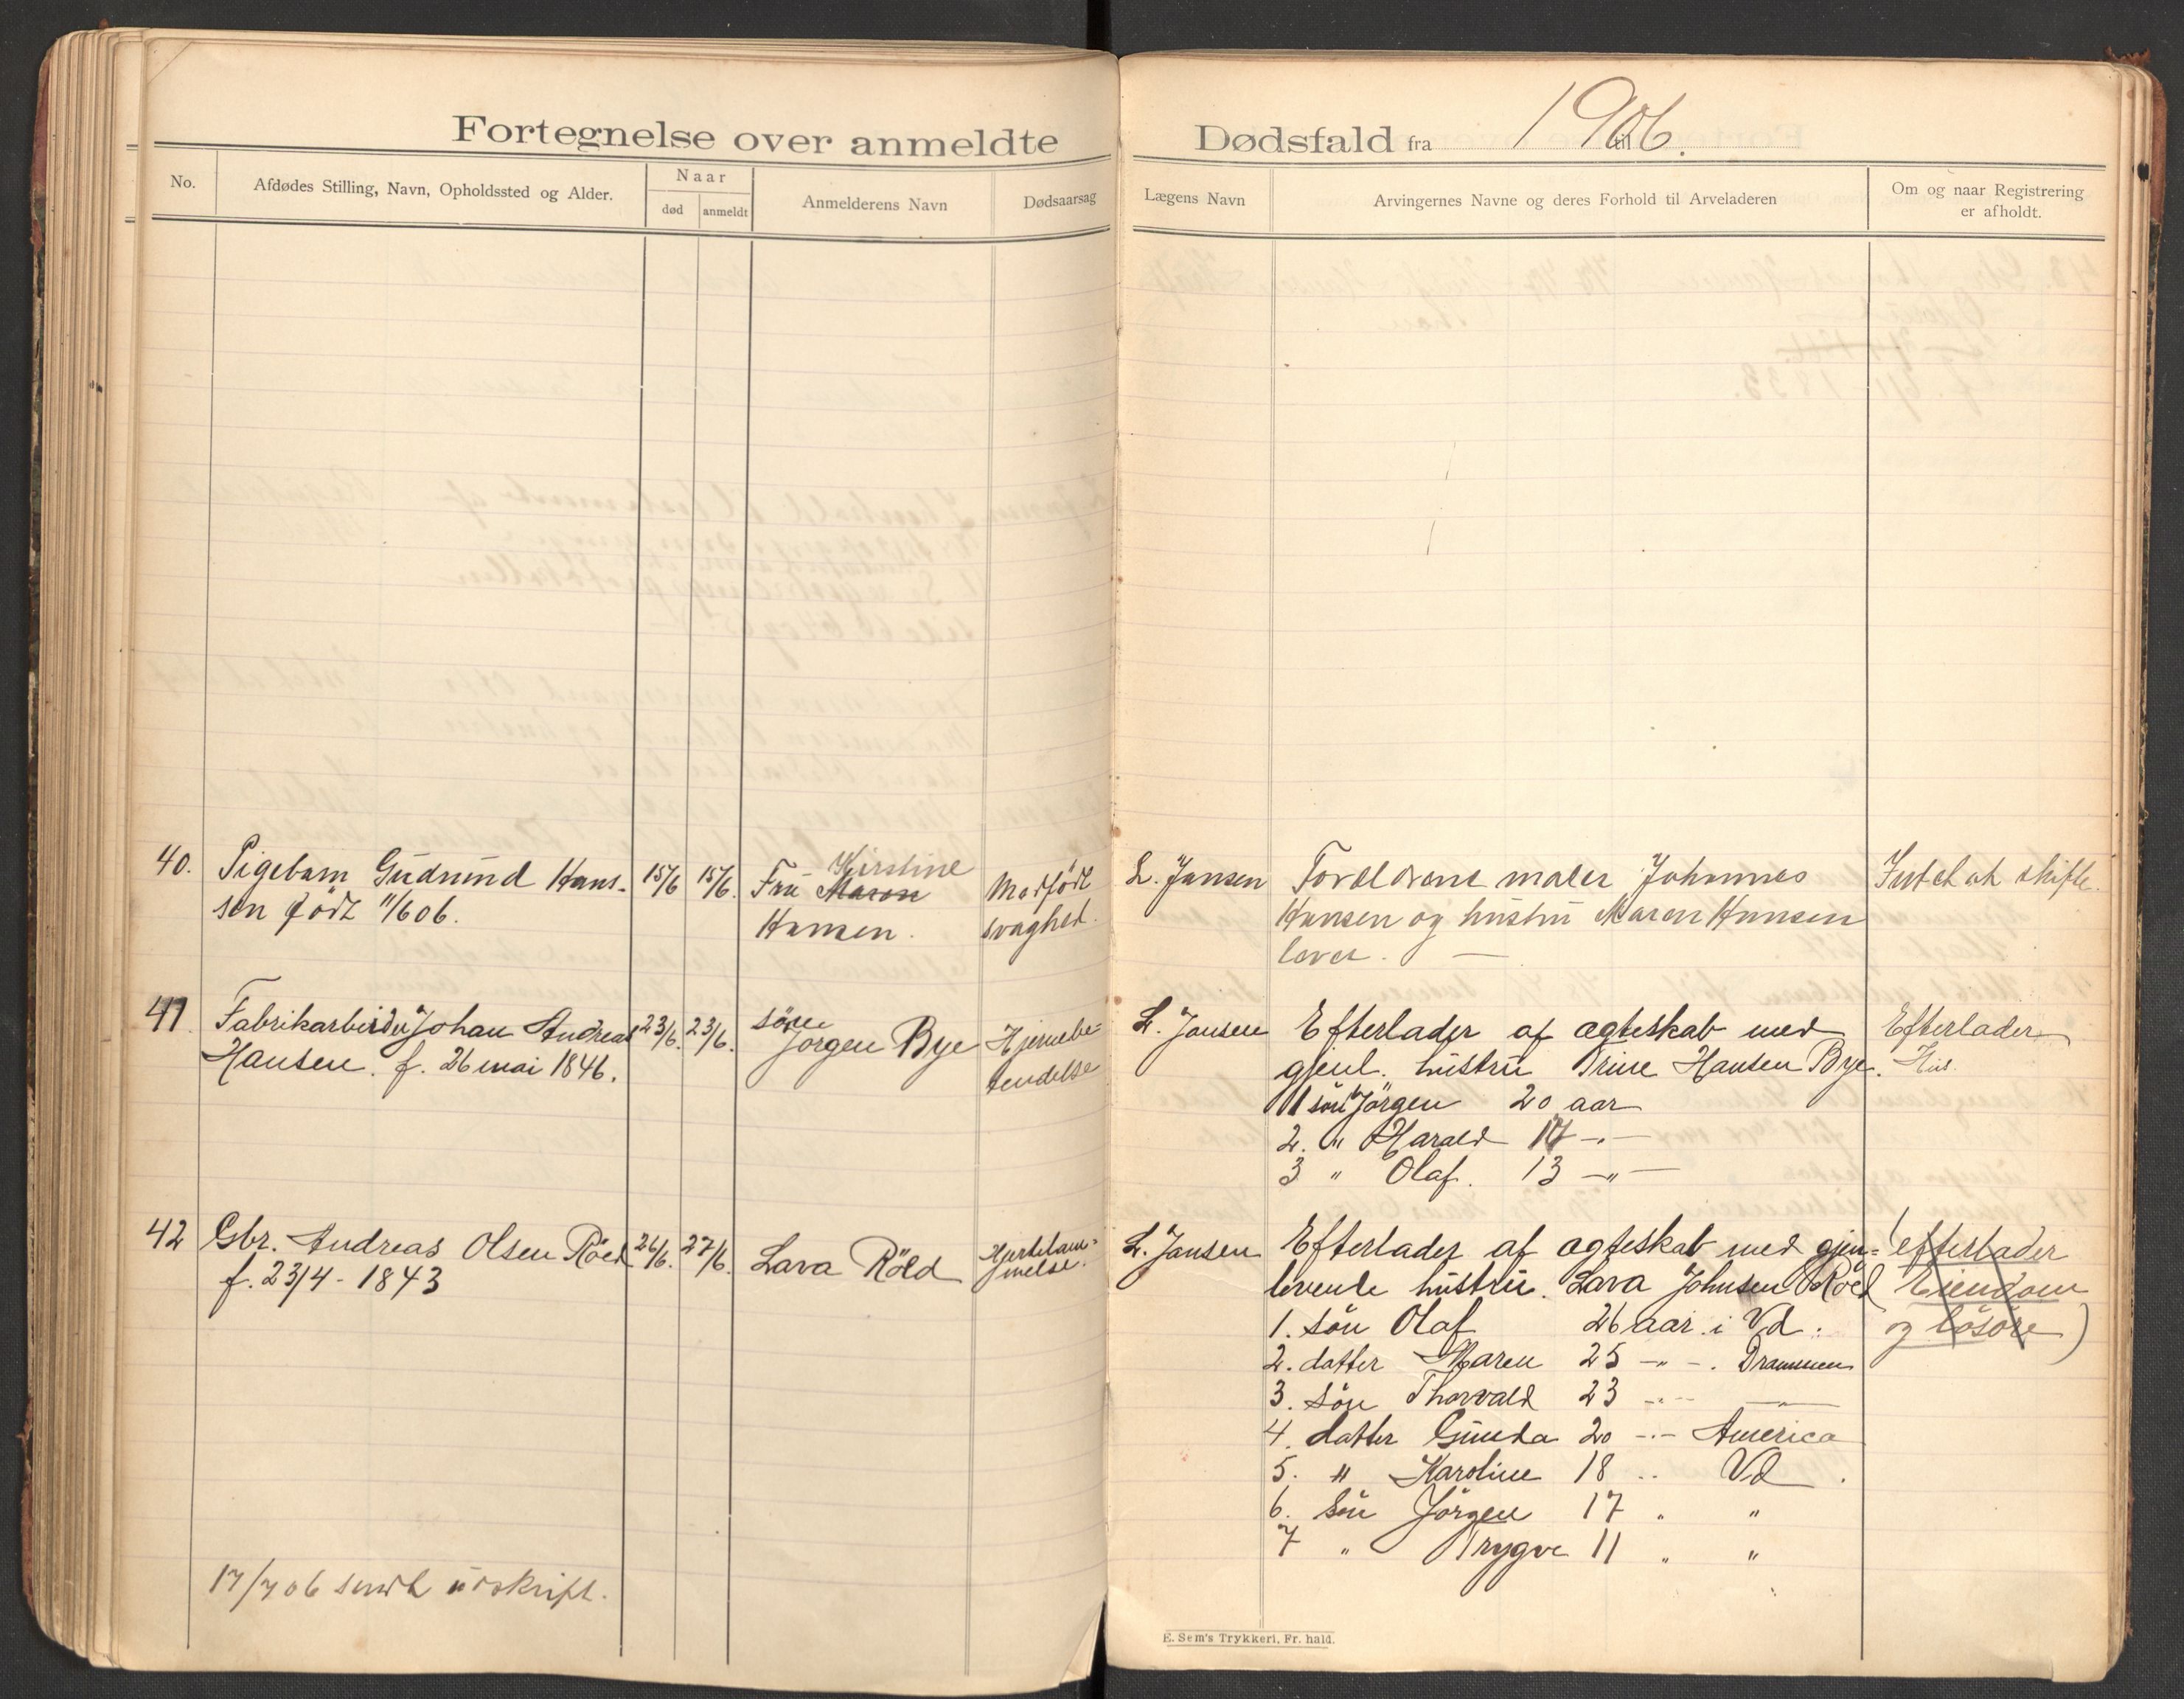 Fortegnelse over anmeldte Dødsfald fra 1906. til
No.
Afdødes Stilling, Navn, Opholdssted og Alder.
Naar
død
anmeldt
Anmelderens Navn
Dødsaarsag
Lægens Navn
Arvingernes Navne og deres Forhold til Arveladeren
Om og naar Registrering
er afholdt.
40.
Pigebarn Gudrund Hans-
sen født 11/6 06.
15/6
15/6.
Kirstine
Fru Maren
Hansen.
Medfødt
svaghed.
L. Jansen
Forældrene maler Johannes
Hansen og hustru Maren Hansen
lever. —
Intet at skifte.
41
Fabrikarbeider Johan Andreas
Hansen. f. 26 mai 1846.
23/6.
23/6.
søn
Jørgen Bye
Hjernebe-
tendelse
L. Jansen
Efterlader af ægteskab med
gjenl. hustru Trine Hansen Bye.
1 søn Jørgen 20 aar
2. " Harald 17 -"-
3 " Olaf. 13 -"-
Efterlader
Hus.
42
Gbr. Andreas Olsen Röed
f. 23/4 - 1843
26/6.
27/6.
Lava Röld
Hjertelam-
melse.
L. Jansen
Efterlader af ægteskab med gjen-
levende hustru. Lava Johnsen Röed
1. søn Olaf 26 aar i Vd.
2. datter Maren 25 -"- . Drammen
3. søn Thorvald 23 -"- -"-
4. datter Gunda 20 -"- America
5. " Karoline 18 .. Vd.
6. søn Jörgen 17 " "
7 " Trygve 11 " "
(efterlader
Eiendom
og løsøre)
17/7 06 sendt udskrift.
E. Sem's Trykkeri, Fr. hald.